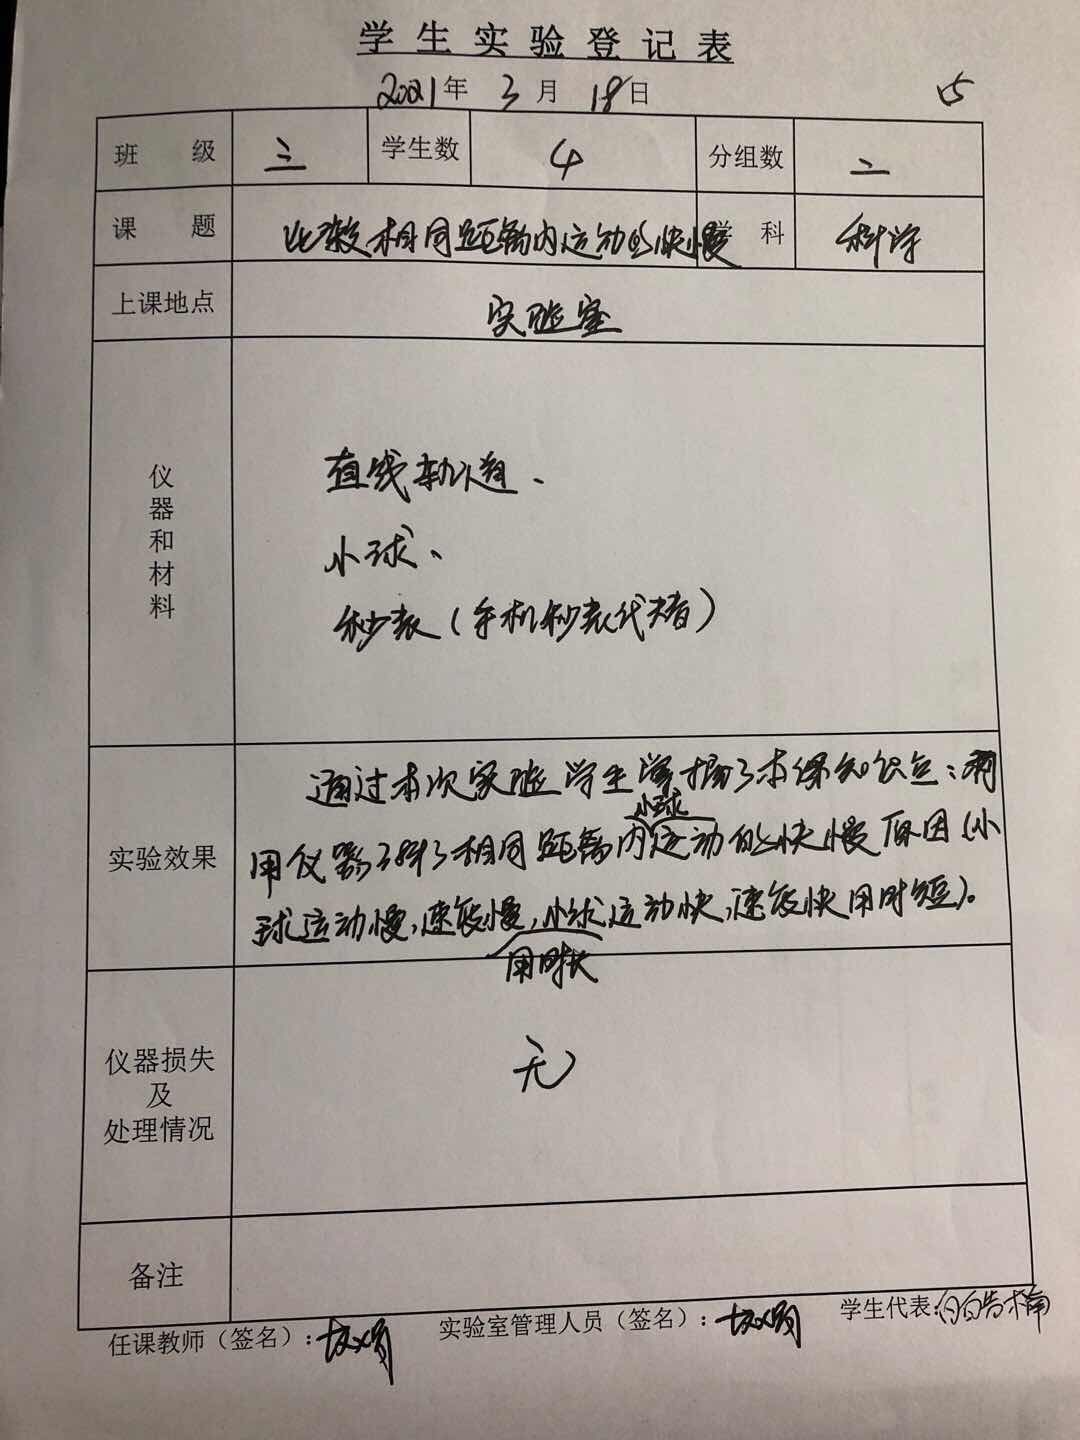 学生实验登记表
2021年 3月 18日 15
班级 三 学生数 4 分组数 二
课题 比较相同距离内运动的快慢 学科 科学
上课地点 实验室
仪器和材料
直线轨道、
小球、
秒表(手机秒表代替)
实验效果
通过本次实验学生掌握了本课知识点:利
小球
用仪器了解了相同距离内运动的快慢原因(小
球运动慢,速度慢,小球运动快,速度快用时短)。
用时长
仪器损失
及
处理情况
无
备注
任课教师(签名): 实验室管理人员(签名): 学生代表: